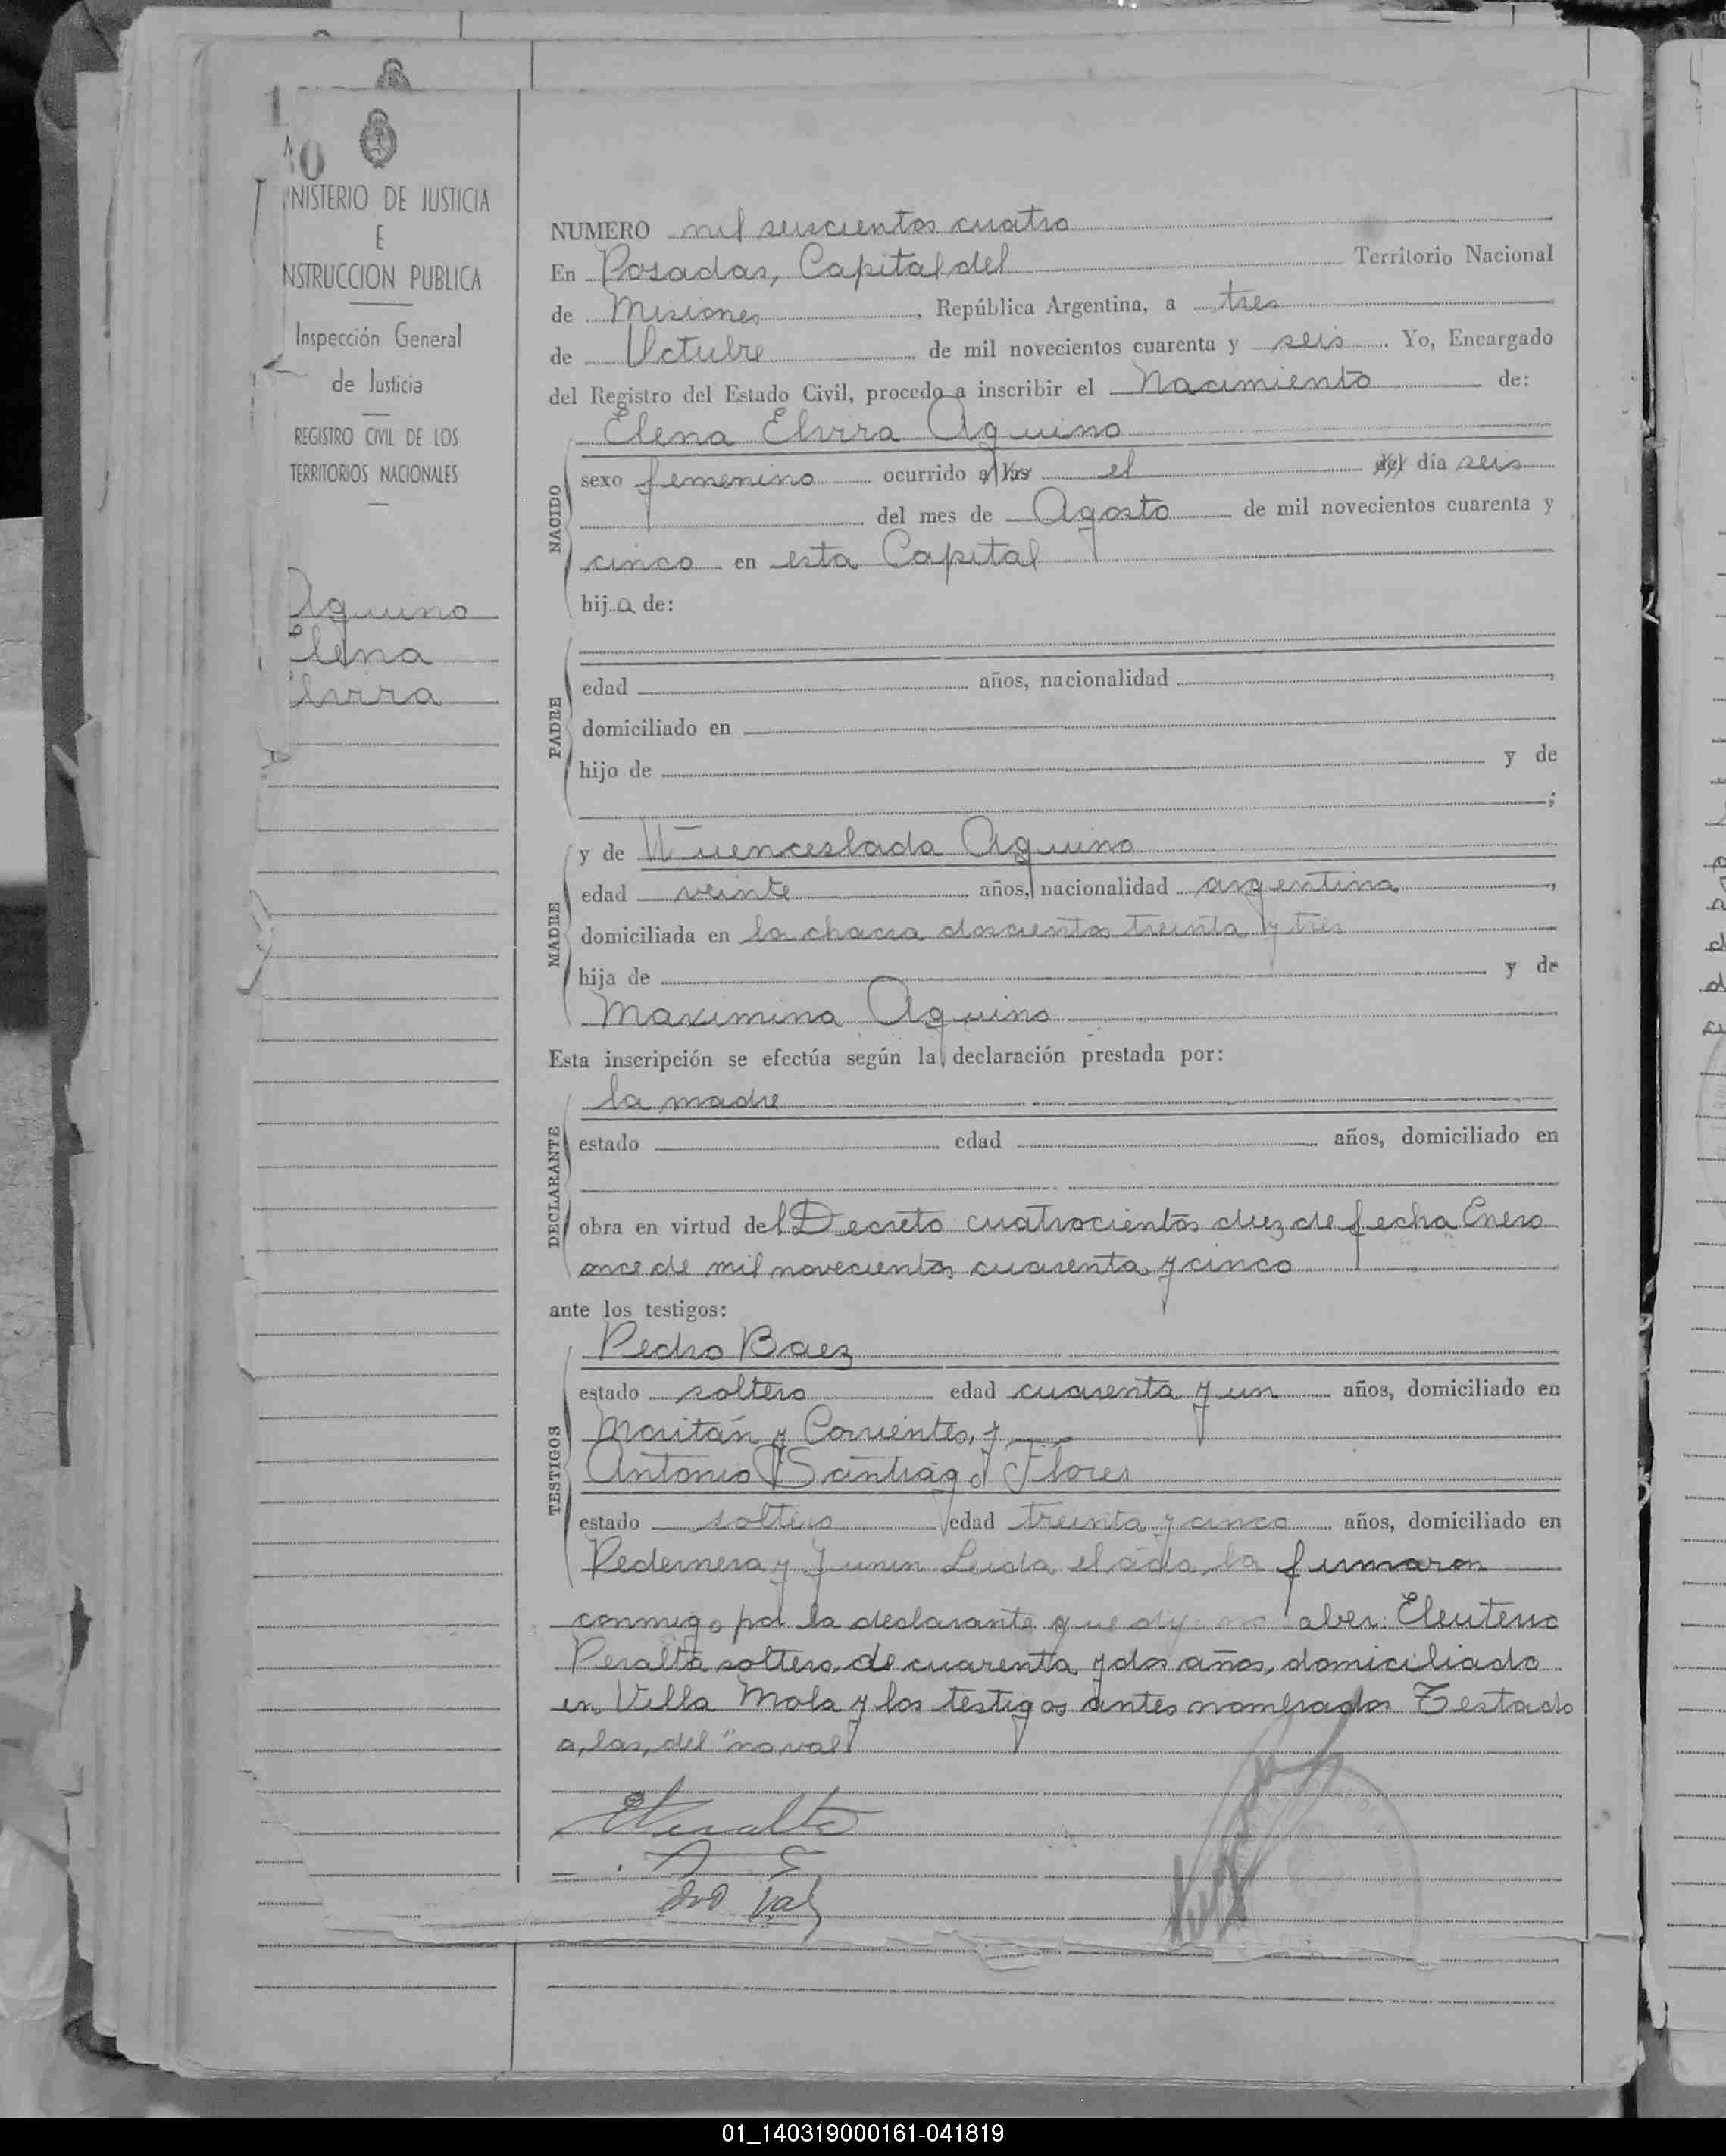 NISTERIO DE JUSTICIA
E
NSTRUCCION PUBLICA
Inspección General
de Justicia
REGISTRO CIVIL DE LOS
TERRITORIOS NACIONALES
Aquino
Elena
Elvira
NUMERO mil seiscientos cuatro
En Posadas, Capital del Territorio Nacional
de Misiones, República Argentina, a tres
de Octubre de mil novecientos cuarenta y seis. Yo, Encargado
del Registro del Estado Civil, procedo a inscribir el Nacimiento de:
NACIDO
Elena Elvira Aquino
sexo femenino ocurrido a las el del día seis
del mes de Agosto de mil novecientos cuarenta y
cinco en esta Capital
hija de:
PADRE
edad años, nacionalidad ,
domiciliado en
hijo de y de
;
MADRE
y de Wuenceslada Aquino
edad veinte años, nacionalidad argentina,
domiciliada en la chacra doscientos treinta y tres
hija de y de
Maximina Aquino
Esta inscripción se efectúa según la declaración prestada por:
DECLARANTE
la madre
estado edad años, domiciliado en
obra en virtud del Decreto cuatrocientos diez de fecha Enero
once de mil novecientos cuarenta y cinco
ante los testigos:
TESTIGOS
Pedro Baez
estado soltero edad cuarenta y un años, domiciliado en
Moritán y Corrientes, y
Antonio Santiago Flores
estado soltero edad treinta y cinco años, domiciliado en
Pedernera y Junin Leida el acta, la firmaron
conmigo por la declarante que dijo no saber: Eleuterio
Peralta soltero, de cuarenta y dos años, domiciliado
en Villa Mola y los testigos antes nombrados Testado
a, las, del "no vale"
EPeralta
01_140319000161-041819